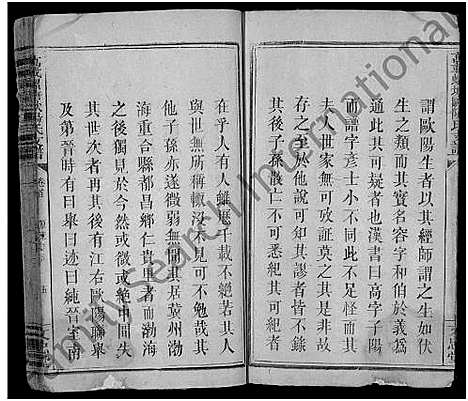 謂歐陽生者以其經師謂之生如伏
生之類而其實名容字和伯於義為
通此其可疑者也漢書曰高字子陽
而譜字彥士小不同此不足怪而
夫人世家無可攷証莫之其是非故
存之至於他說可知其謬者皆不錄
其後子孫散亡不可悉紀其可紀者
在乎人有人雖歷千載不絕若其人
與世無所稱輙沒不見可不勉哉其
他子孫亦遂微弱無聞其居冀州渤
海重合縣都昌鄉仁貴里者而渤海
之後獨見於今然或微或絕中間失
其世次者再其後有江右歐陽聯舉
及第晉時有曰舉曰迹曰純晉宝南
FamilySearch International